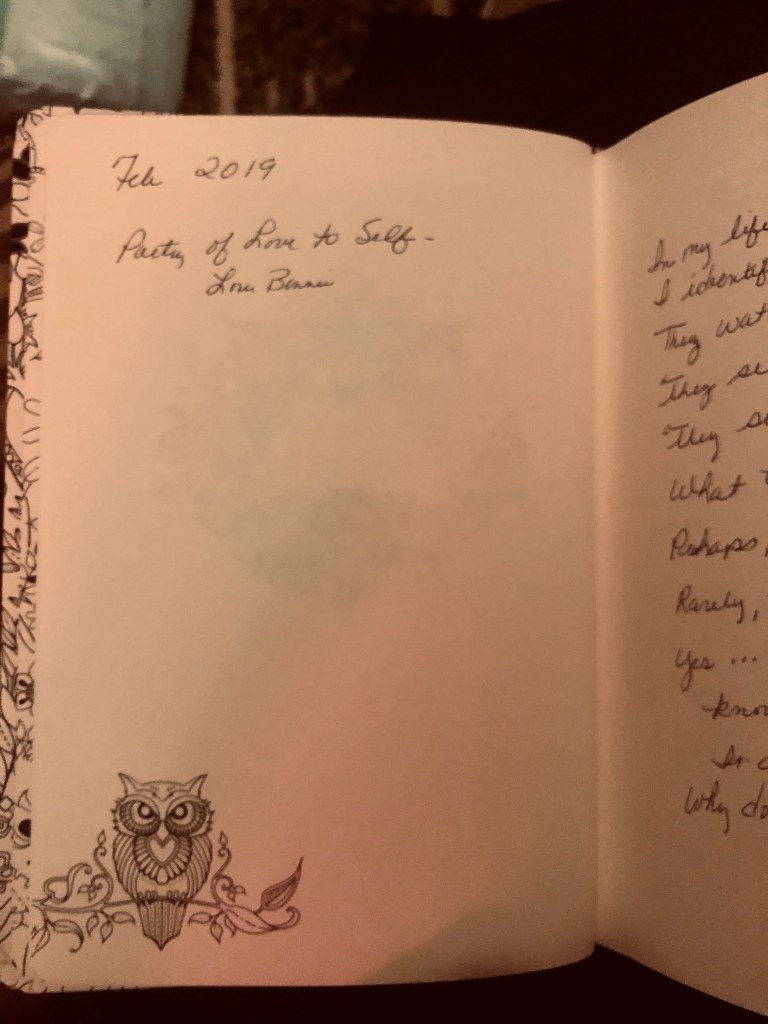 Feb 2019
Poetry of Love to Self -
In my life
I identif
They wat
They se
They s
What
Perhaps,
Rarely,
Yes ...
know
It
Why do